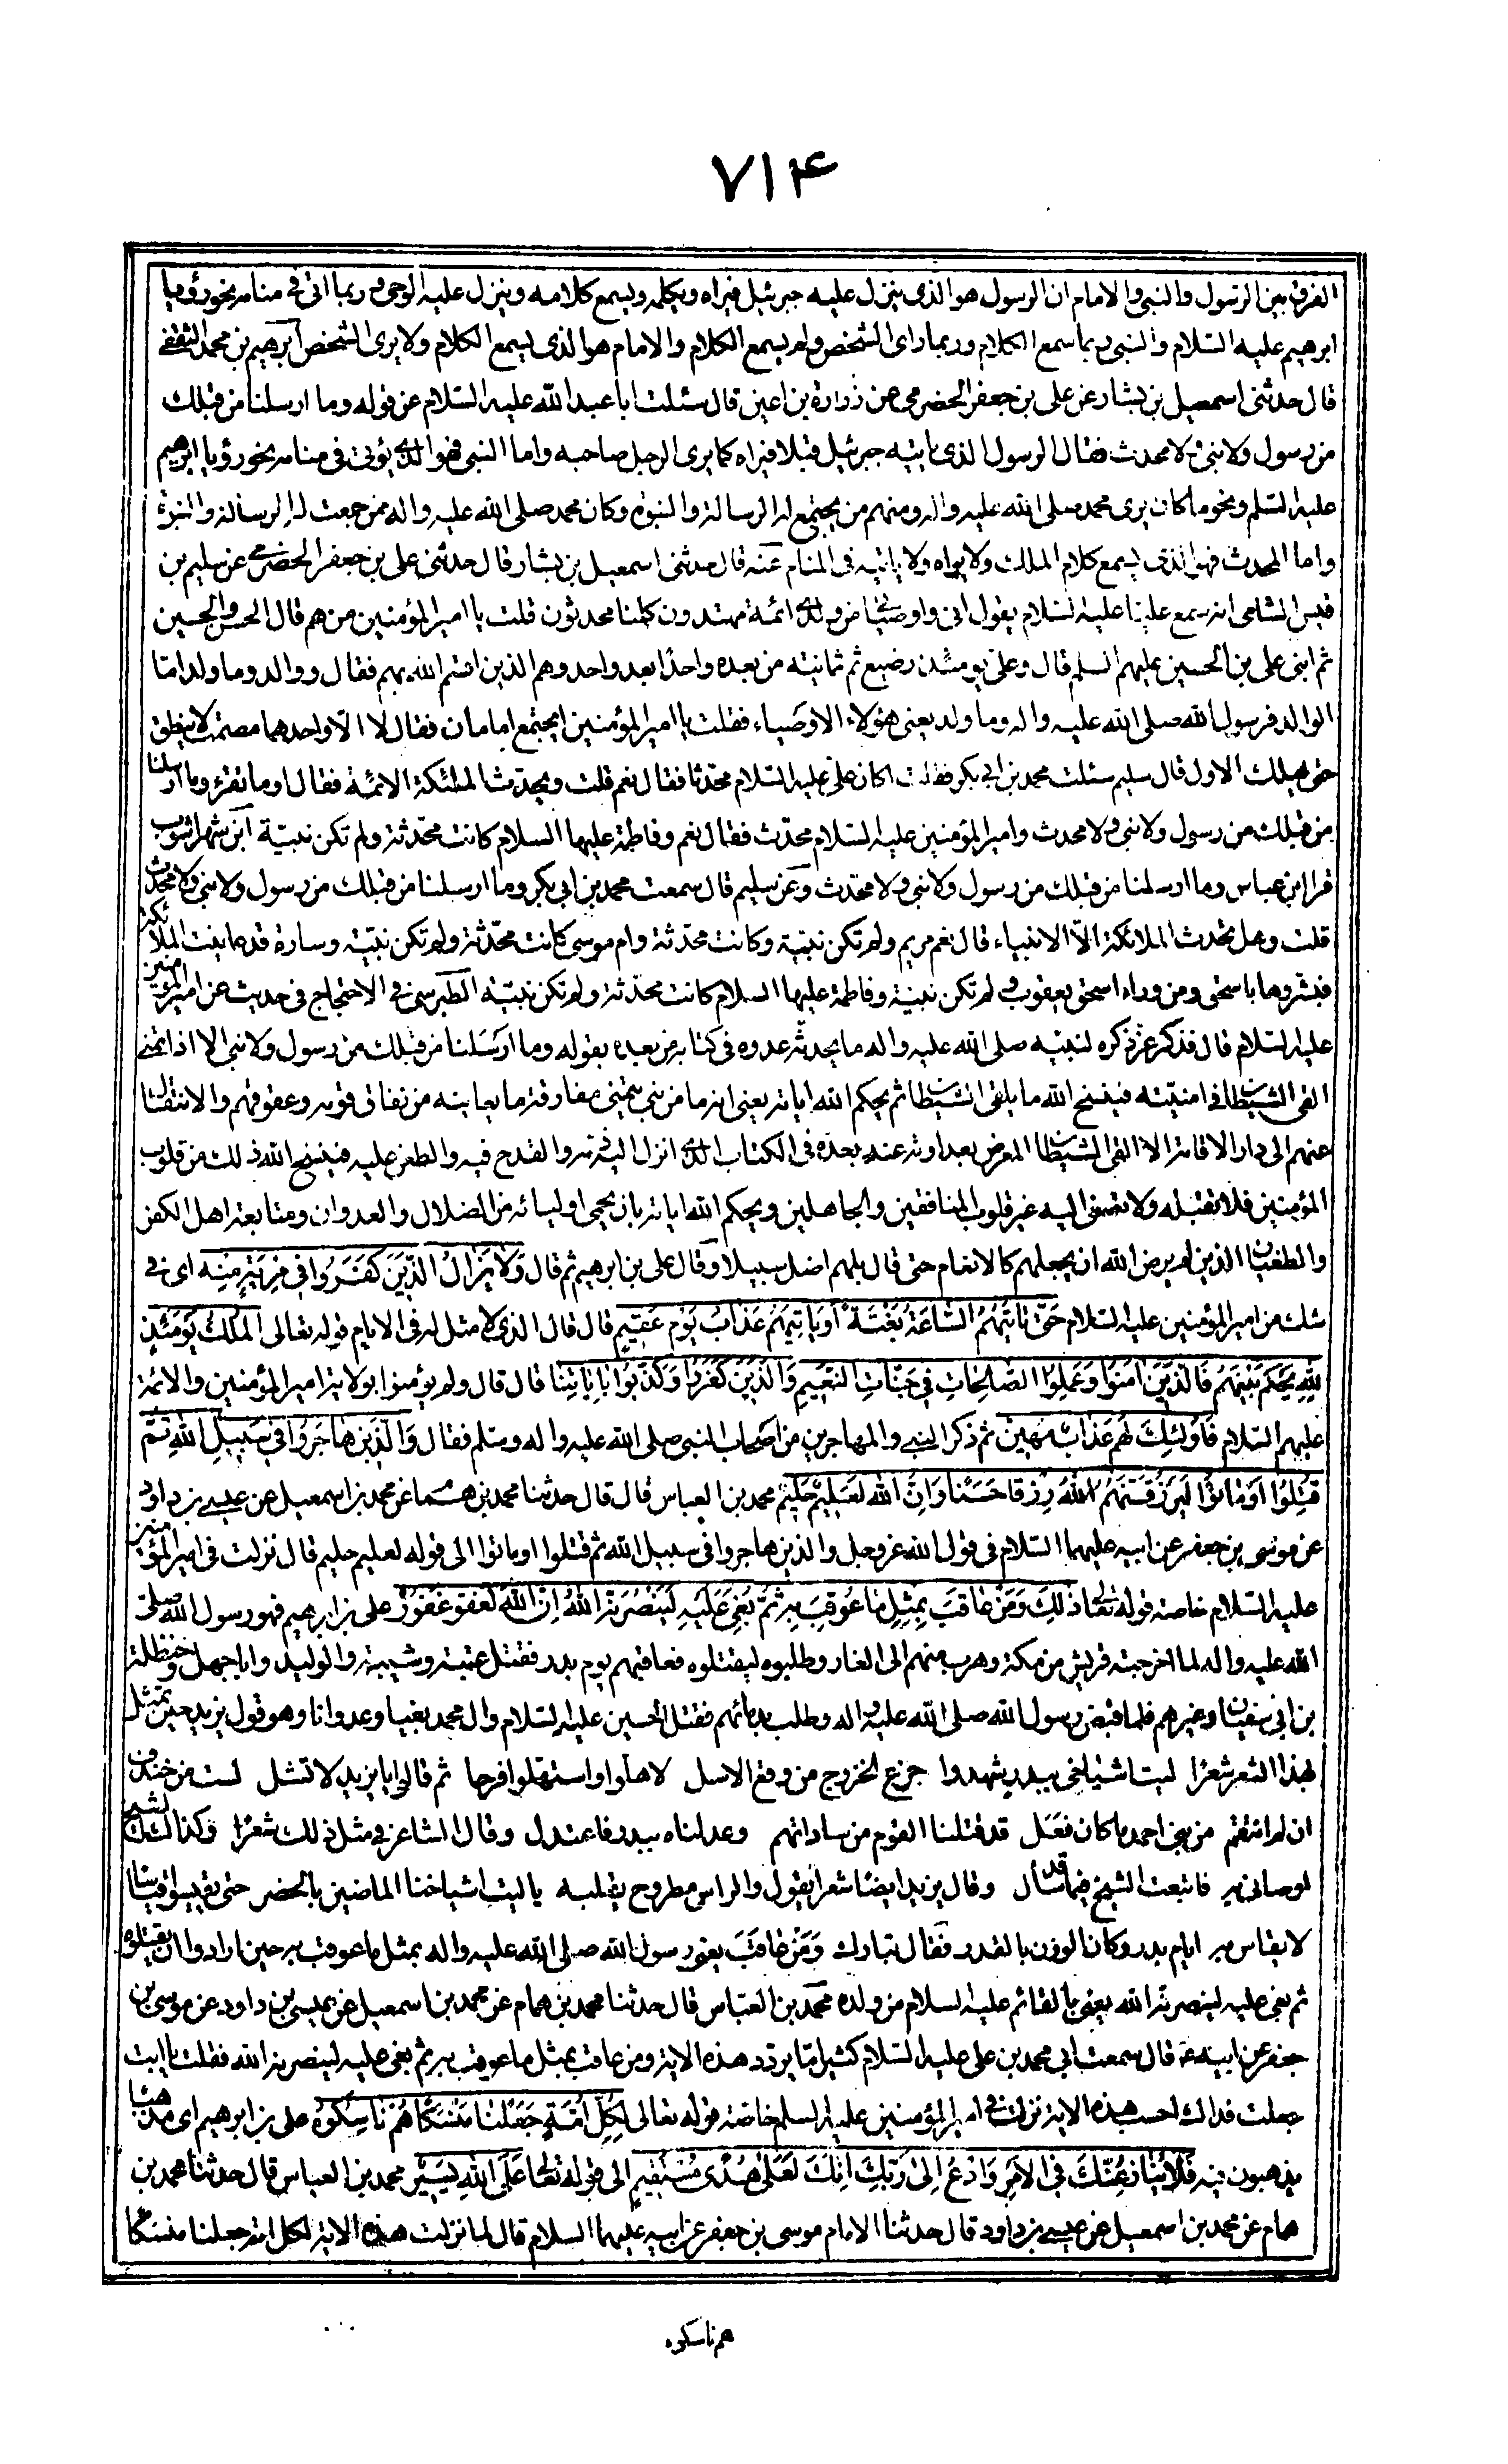 ۷۱۴
الفرق بين الرسول والنبي والامام ان الرسول هو الذي ينزل عليه جبرئيل فيراه ويكلمه ويسمع كلامه وينزل عليه الوحي وربما اتى في منامه نحو رؤيا
ابرهيم عليه السلام والنبي ربما سمع الكلام وربما راى الشخص ولم يسمع الكلام والامام هو الذي يسمع الكلام ولا يرى الشخص ابرهيم بن محمد الثقفي
قال حدثني اسمعيل بن بشار عن علي بن جعفر الحضرمي عن زرارة بن اعين قال سئلت ابا عبد الله عليه السلام عن قوله وما ارسلنا من قبلك
من رسول ولا نبي ولا محدث فقال الرسول الذي ياتيه جبرئيل قبلا فيراه كما يرى الرجل صاحبه واما النبي فهو الذي يؤتى في منامه نحو رؤيا ابرهيم
عليه السلم ونحو ما كان يرى محمد صلى الله عليه واله ومنهم من يجتمع له الرسالة والنبوة وكان محمد صلى الله عليه واله ممن جمعت له الرسالة والنبوة
واما المحدث فهو الذي يسمع كلام الملك ولا يراه ولا ياتيه في المنام عنه قال حدثني اسمعيل بن بشار قال حدثني علي بن جعفر الحضرمي عن سليم بن
قيس الشامي انه سمع عليا عليه السلام يقول اني واوصيائي من ولدي ائمة مهتدون كلنا محدثون قلت يا امير المؤمنين من هم قال الحسن والحسين
ثم ابني علي بن الحسين عليهم السلم قال وعلي يومئذ رضيع ثم ثمانية من بعده واحدا بعد واحد وهم الذين اقسم الله بهم فقال ووالد وما ولد اما
الوالد فرسول الله صلى الله عليه واله وما ولد يعني هؤلاء الاوصياء فقلت يا امير المؤمنين ايجتمع امامان فقال لا الا واحدهما مصمت لا ينطق
حتى يهلك الاول قال سليم سئلت محمد بن ابي بكر فقلت اكان علي عليه السلام محدثا فقال نعم قلت ويحدث الملئكة الائمة فقال اوما تقرء وما ارسلنا
من قبلك من رسول ولا نبي ولا محدث وامير المؤمنين عليه السلام محدث فقال نعم وفاطمة عليها السلام كانت محدثة ولم تكن نبية ابن شهراشوب
قرا ابن عباس وما ارسلنا من قبلك من رسول ولا نبي ولا محدث وعن سليم قال سمعت محمد بن ابي بكر وما ارسلنا من قبلك من رسول ولا نبي ولا محدث
قلت وهل يحدث الملائكة الا الانبياء قال نعم مريم ولم تكن نبية وكانت محدثة وام موسى كانت محدثة ولم تكن نبية وسارة قد عاينت الملائكة
فبشروها باسحق ومن وراء اسحق يعقوب ولم تكن نبية وفاطمة عليها السلام كانت محدثة ولم تكن نبية الطبرسي في الاحتجاج في حديث عن امير المؤمنين
عليه السلام قال فذكر عز ذكره لنبيه صلى الله عليه واله ما يحدثه عدوه في كتابه من بعده بقوله وما ارسلنا من قبلك من رسول ولا نبي الا اذا تمنى
القى الشيطان في امنيته فينسخ الله ما يلقى الشيطان ثم يحكم الله اياته يعني انه ما من نبي يتمنى مفارقة ما يعاينه من نفاق قومه وعقوقهم والانتقال
عنهم الى دار الاقامة الا القى الشيطان المعرض بعداوته عند بعده في الكتاب الذي انزل اليه ذمه والقدح فيه والطعن عليه فينسخ الله ذلك من قلوب
المؤمنين فلا تقبله ولا تصغى اليه غير قلوب المنافقين والجاهلين ويحكم الله اياته بان يحمي اوليائه من الضلال والعدوان ومتابعة اهل الكفر
والطغيان الذين لم يرض الله ان يجعلهم كالانعام حتى قال بل هم اضل سبيلا وقال علي بن ابرهيم ثم قال وَلَا يَزَالُ الَّذِينَ كَفَرُوا فِي مِرْيَةٍ مِنْهُ اى في
شك من امير المؤمنين عليه السلام حَتَّى تَأْتِيَهُمُ السَّاعَةُ بَغْتَةً أَوْ يَأْتِيَهُمْ عَذَابُ يَوْمٍ عَقِيمٍ قال قال الذي لا مثل له في الايام قوله تعالى الْمُلْكُ يَوْمَئِذٍ
لِلَّهِ يَحْكُمُ بَيْنَهُمْ فَالَّذِينَ آمَنُوا وَعَمِلُوا الصَّالِحَاتِ فِي جَنَّاتِ النَّعِيمِ وَالَّذِينَ كَفَرُوا وَكَذَّبُوا بِآيَاتِنَا قال قال ولم يؤمنوا بولاية امير المؤمنين والائمة
عليهم السلام فَأُولَئِكَ لَهُمْ عَذَابٌ مُهِينٌ ثم ذكر النبي والمهاجرين من اصحاب النبي صلى الله عليه واله وسلم فقال وَالَّذِينَ هَاجَرُوا فِي سَبِيلِ اللَّهِ ثُمَّ
قُتِلُوا أَوْ مَاتُوا لَيَرْزُقَنَّهُمُ اللَّهُ رِزْقًا حَسَنًا وَإِنَّ اللَّهَ لَعَلِيمٌ حَلِيمٌ محمد بن العباس قال قال حدثنا محمد بن همام عن محمد بن اسمعيل عن عيسى بن داود
عن موسى بن جعفر عن ابيه عليهما السلام في قول الله عز وجل والذين هاجروا في سبيل الله ثم قتلوا او ماتوا الى قوله لعليم حليم قال نزلت في امير المؤمنين
عليه السلام خاصة قوله تعالى ذَلِكَ وَمَنْ عَاقَبَ بِمِثْلِ مَا عُوقِبَ بِهِ ثُمَّ بُغِيَ عَلَيْهِ لَيَنْصُرَنَّهُ اللَّهُ إِنَّ اللَّهَ لَعَفُوٌّ غَفُورٌ علي بن ابرهيم فهو رسول الله صلى
الله عليه واله لما اخرجته قريش من مكة وهرب منهم الى الغار وطلبوه ليقتلوه فعاقبهم يوم بدر فقتل عتبة وشيبة والوليد وابا جهل وحنظلة
بن ابي سفيان وغيرهم فلما قبض رسول الله صلى الله عليه واله وطلب بدمائهم فقتل الحسين عليه السلام وال محمد بغيا وعدوانا وهو قول يزيد حين تمثل
بهذا الشعر شعرا ليت اشياخي ببدر شهدوا جزع الخزرج من وقع الاسل لاهلوا واستهلوا فرحا ثم قالوا يا يزيد لا تشل لست من خندف
ان لم انتقم من بني احمد ما كان فعل قد قتلنا القوم من ساداتهم وعدلناه ببدر فاعتدل وقال الشاعر في مثل ذلك شعرا وكذاك الشيخ
اوصاني به فاتبعت الشيخ فيما قد سأل وقال يزيد ايضا شعرا يقول والراس مطروح يقلبه يا ليت اشياخنا الماضين بالحضر حتى يقيسوا قياسا
لا يقاس به ايام بدر وكان الوزن بالقدر فقال تبارك وَمَنْ عَاقَبَ يعني رسول الله صلى الله عليه واله بمثل ما عوقب به حين ارادوا ان يقتلوه
ثم بغي عليه لينصرنه الله يعني بالقائم عليه السلام من ولده محمد بن العباس قال حدثنا محمد بن همام عن محمد بن اسمعيل عن عيسى بن داود عن موسى بن
جعفر عن ابيه قال سمعت ابي محمد بن علي عليه السلام كثيرا ما يردد هذه الاية ومن عاقب بمثل ما عوقب به ثم بغي عليه لينصرنه الله فقلت يا ابت
جعلت فداك احسب هذه الاية نزلت في امير المؤمنين عليه السلم خاصة قوله تعالى لِكُلِّ أُمَّةٍ جَعَلْنَا مَنْسَكًا هُمْ نَاسِكُوهُ علي بن ابرهيم اى مذهبا
يذهبون فيه فَلَا يُنَازِعُنَّكَ فِي الْأَمْرِ وَادْعُ إِلَى رَبِّكَ إِنَّكَ لَعَلَى هُدًى مُسْتَقِيمٍ الى قوله تعالى عَلَى اللَّهِ يَسِيرٌ محمد بن العباس قال حدثنا محمد بن
همام عن محمد بن اسمعيل عن عيسى بن داود قال حدثنا الامام موسى بن جعفر عن ابيه عليهما السلام قال لما نزلت هذه الاية لكل امة جعلنا منسكا
هم ناسكوه